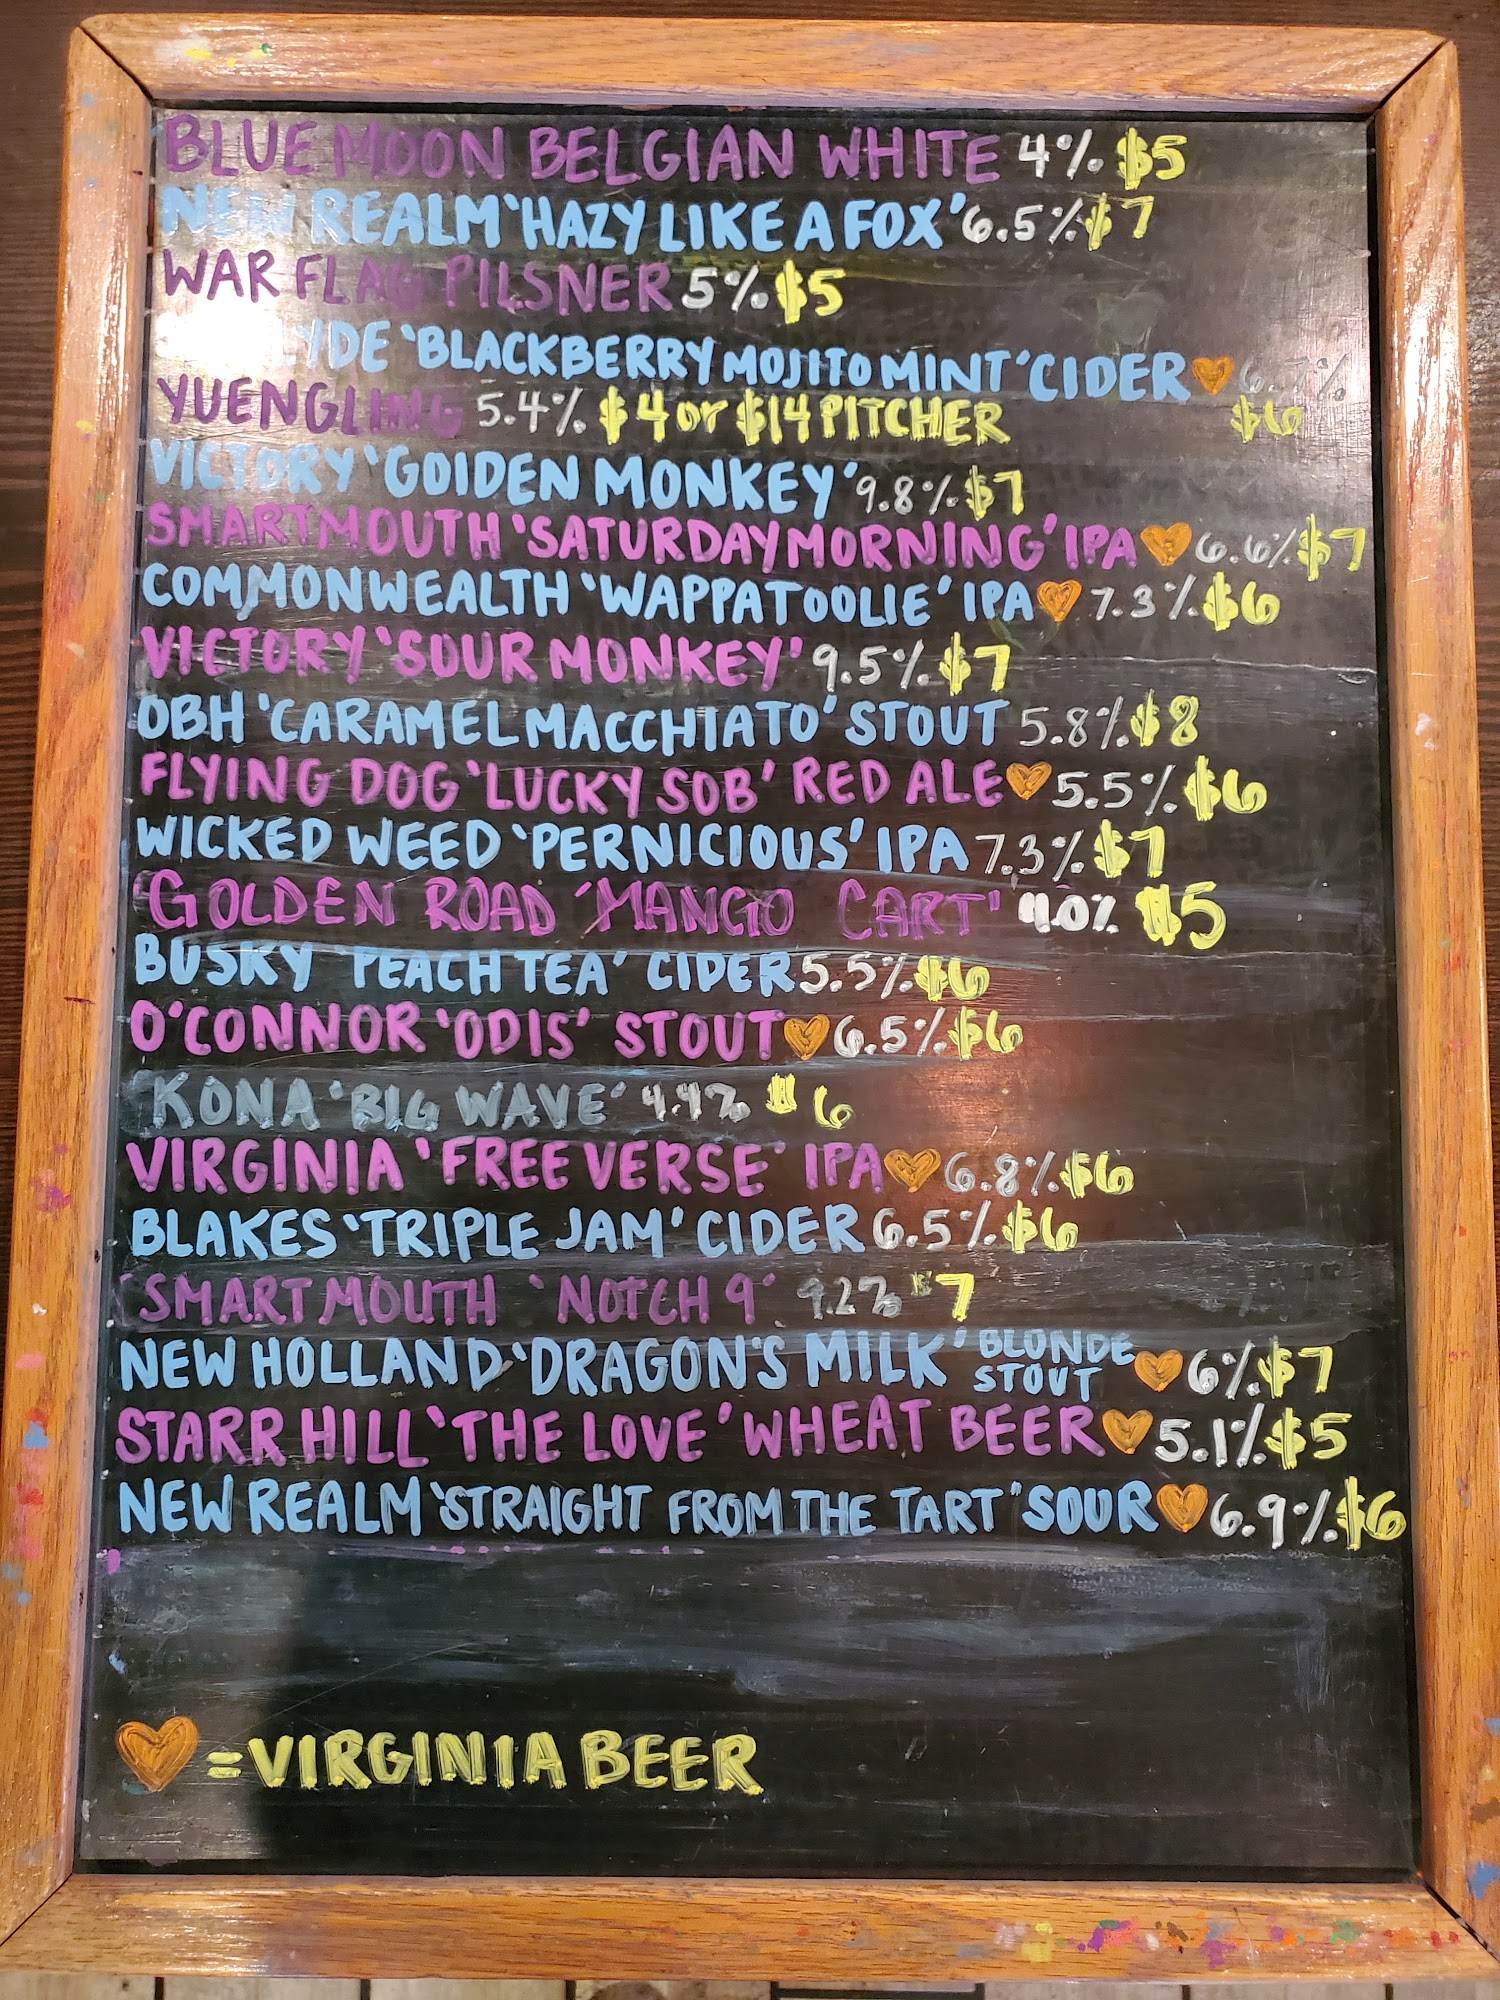 BLUE MOON BELGIAN WHITE 4% $5
NEW REALM 'HAZY LIKE A FOX' 6.5% $7
WAR FLAG PILSNER 5% $5
'BLACKBERRY MOJITO MINT' CIDER 🧡
$6
YUENGLING 5.4% $4 or $14 PITCHER
VICTORY 'GOLDEN MONKEY' 9.8% $7
SMARTMOUTH 'SATURDAY MORNING' IPA 🧡 6.6% $7
COMMONWEALTH 'WAPPATOOLIE' IPA 🧡 7.3% $6
VICTORY 'SOUR MONKEY' 9.5% $7
OBH 'CARAMEL MACCHIATO' STOUT 5.8% $8
FLYING DOG 'LUCKY SOB' RED ALE 🧡 5.5% $6
WICKED WEED 'PERNICIOUS' IPA 7.3% $7
GOLDEN ROAD 'MANGO CART' 4.0% $5
BUSKY 'PEACH TEA' CIDER 5.5% $6
O'CONNOR 'ODIS' STOUT 🧡 6.5% $6
KONA 'BIG WAVE' 4.4% $6
VIRGINIA 'FREE VERSE' IPA 🧡 6.8% $6
BLAKES 'TRIPLE JAM' CIDER 6.5% $6
SMARTMOUTH 'NOTCH 9' 9.2% $7
NEW HOLLAND 'DRAGON'S MILK' BLONDE STOUT 🧡 6% $7
STARR HILL 'THE LOVE' WHEAT BEER 🧡 5.1% $5
NEW REALM 'STRAIGHT FROM THE TART" SOUR 🧡 6.9% $6
🧡 = VIRGINIA BEER